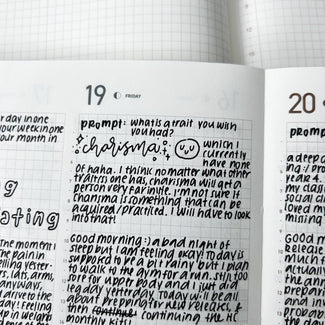 r day in one
your week in one
our month in
g
ating
the moment I
The pain in
elling yester-
nyways,
drive to the
day! Feeling
19 FRIDAY
prompt: what is a trait you wish
you had?
charisma which I
currently
have none
of haha. I think no matter what other
trait(s) one has, charisma will get a
person very far in life. I'm not sure if
charisma is something that can be
acquired / practiced. I will have to look
into that!
Good morning :) a bad night of
sleep but I am feeling okay. Today is
supposed to be a bit rainy but I plan
to walk to the gym for a run. Still too
sore for upper body and I just did
leg day yesterday. Today will be all
about prepping the new releases &
then continue continuing the
monthly kits!
20
prompt
a deep
year 4
my
into
Good
releas
much
that
actual
the
for
because